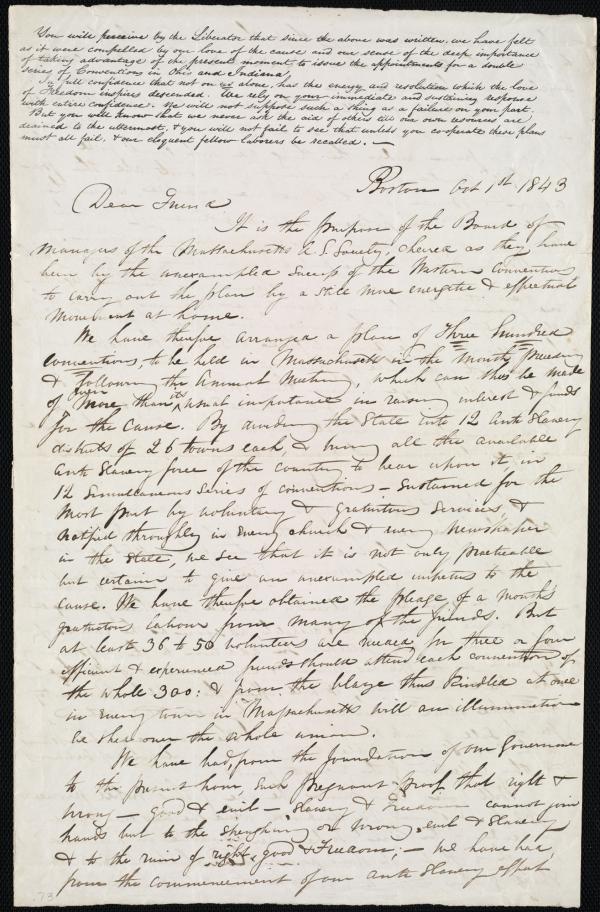 You will perceive by the Liberator that since the above was written, we have felt
as it were compelled by our love of the cause and our sense of the deep importance
of taking advantage of the present moment to issue the appointments for a double
series of Conventions in Ohio and Indiana,
In full confidence that not on us alone, has the energy and resolution which the love
of Freedom inspires descended. We rely on your immediate and sustaining response
with entire confidence. We will not suppose such a thing as a failure on your part.
But you will know that we never ask the aid of others till our own resources are
drained to the uttermost, & you will not fail to see that unless you co-operate these plans
must all fail, & our eloquent fellow laborers be recalled. —
Boston Oct 1st 1843
Dear Friend
It is the purpose of the Board of
Managers of the Massachusetts A. S. Society, cheered as they have
been by the unexampled success of the Western Conventions,
to carry out the plan by a still more energetic & effectual
movement at home.
We have therefore arranged a plan of Three hundred
conventions, to be held in Massachusetts in the months preceding
& following the Annual Meeting, which can thus be made
of even more than its usual importance in raising interest & funds
for the cause. By dividing the State into 12 Anti Slavery
districts of 26 towns each, & bring all the available
Anti Slavery force of the country to bear upon it in
12 simultaneous series of conventions – sustained for the
most part by voluntary & gratuitous services, &
notified throughly in every church & every newspaper
in the State, we see that it is not only practicable
but certain to give an unexampled impetus to the
cause. We have therefore obtained the pledge of a month's
gratuitous labour from many of the friends. But
at least 36 to 50 volunteers are needed for three or four
efficient & experienced friends should attend each convention of
the whole 300: & from the blaze thus kindled at once
in every town in Massachusetts will an illumination
be shed over the whole union.
We have had, from the foundation of our Governme
to the present hour, such pregnant proof that right &
wrong – good & evil – Slavery & Freedom cannot join
hands but to the strengthening of wrong, evil & Slavery
& to the ruin of right, good & Freedom; – we have had,
from the commencement of our anti slavery effort
73